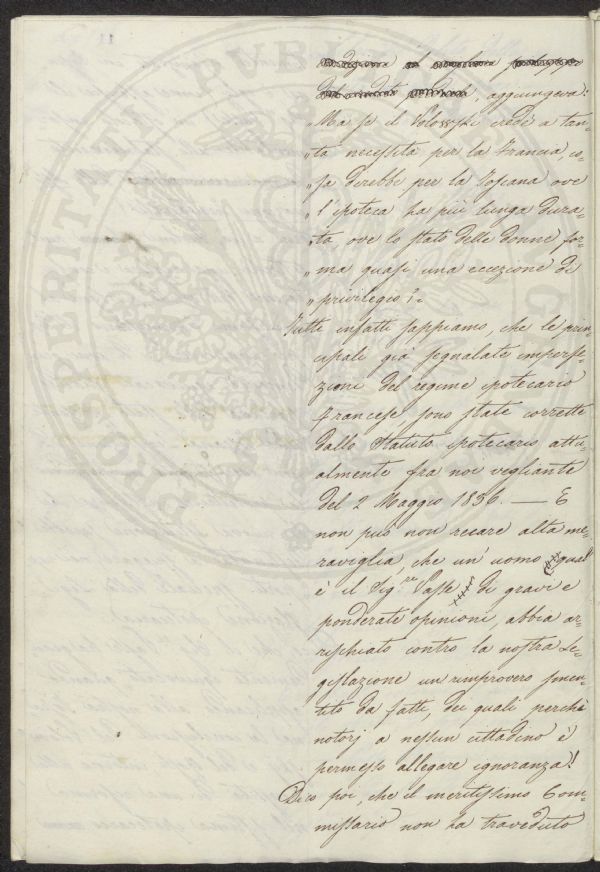 aggiungeva:
„ Ma se il Wolowski crede a tan-
„ ta necessità per la Francia, co-
„ sa direbbe per la Toscana ove
„ l'ipoteca ha più lunga dura-
„ ta, ove lo stato delle donne for-
„ ma quasi una eccezione di
„ privilegio?„
Tutti infatti sappiamo, che le prin-
cipali già segnalate imperfe-
zioni del regime ipotecario
Francese sono state corrette
dallo Statuto ipotecario attu-
almente fra noi vegliante
del 2 Maggio 1836. — E
non può non recare alta me-
raviglia, che un' uomo qual
è il Sig.re di gravi e
ponderate opinioni, abbia ar-
rischiato contro la nostra Le-
gislazione un rimprovero smen-
tito da fatti, dei quali perchè
notorj a nessun cittadino è
permesso allegare ignoranza!
Dico poi, che il meritissimo Com-
missario non ha traveduto
PROSPERITATI PUBLICAE